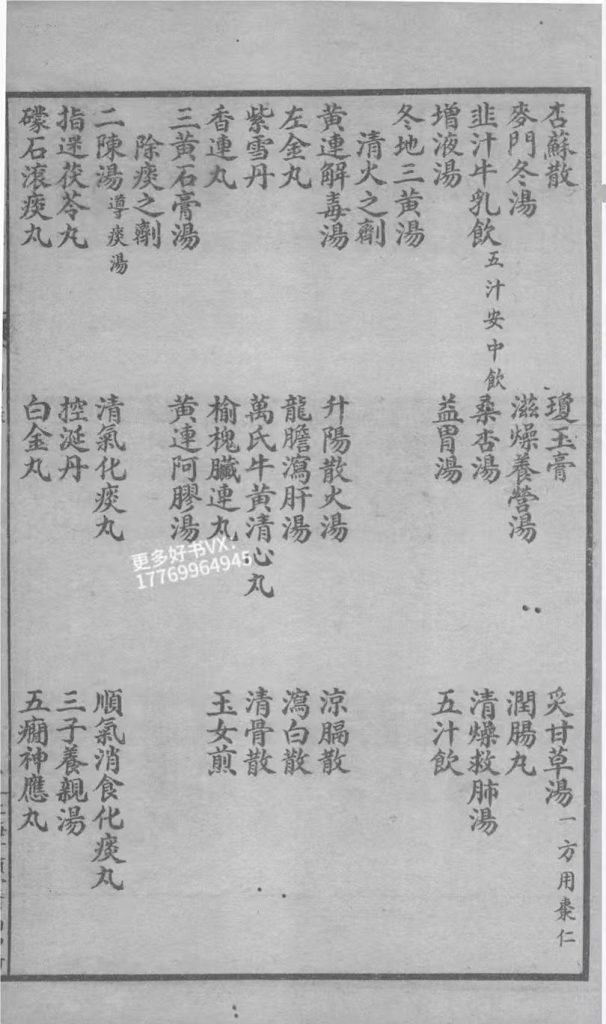 杏蘇散 瓊玉膏 炙甘草湯 一方用棗仁
麥門冬湯 滋燥養營湯 潤腸丸
韭汁牛乳飲 五汁安中飲 桑杏湯 清燥救肺湯
增液湯 益胃湯 五汁飲
冬地三黃湯
清火之劑
黃連解毒湯 升陽散火湯 涼膈散
左金丸 龍膽瀉肝湯 瀉白散
紫雪丹 萬氏牛黃清心丸 清骨散
香連丸 榆槐臟連丸 玉女煎
三黃石膏湯 黃連阿膠湯
除痰之劑
二陳湯 導痰湯 清氣化痰丸 順氣消食化痰丸
指迷茯苓丸 控涎丹 三子養親湯
礞石滾痰丸 白金丸 五癇神應丸
更多好书VX:
17769964945